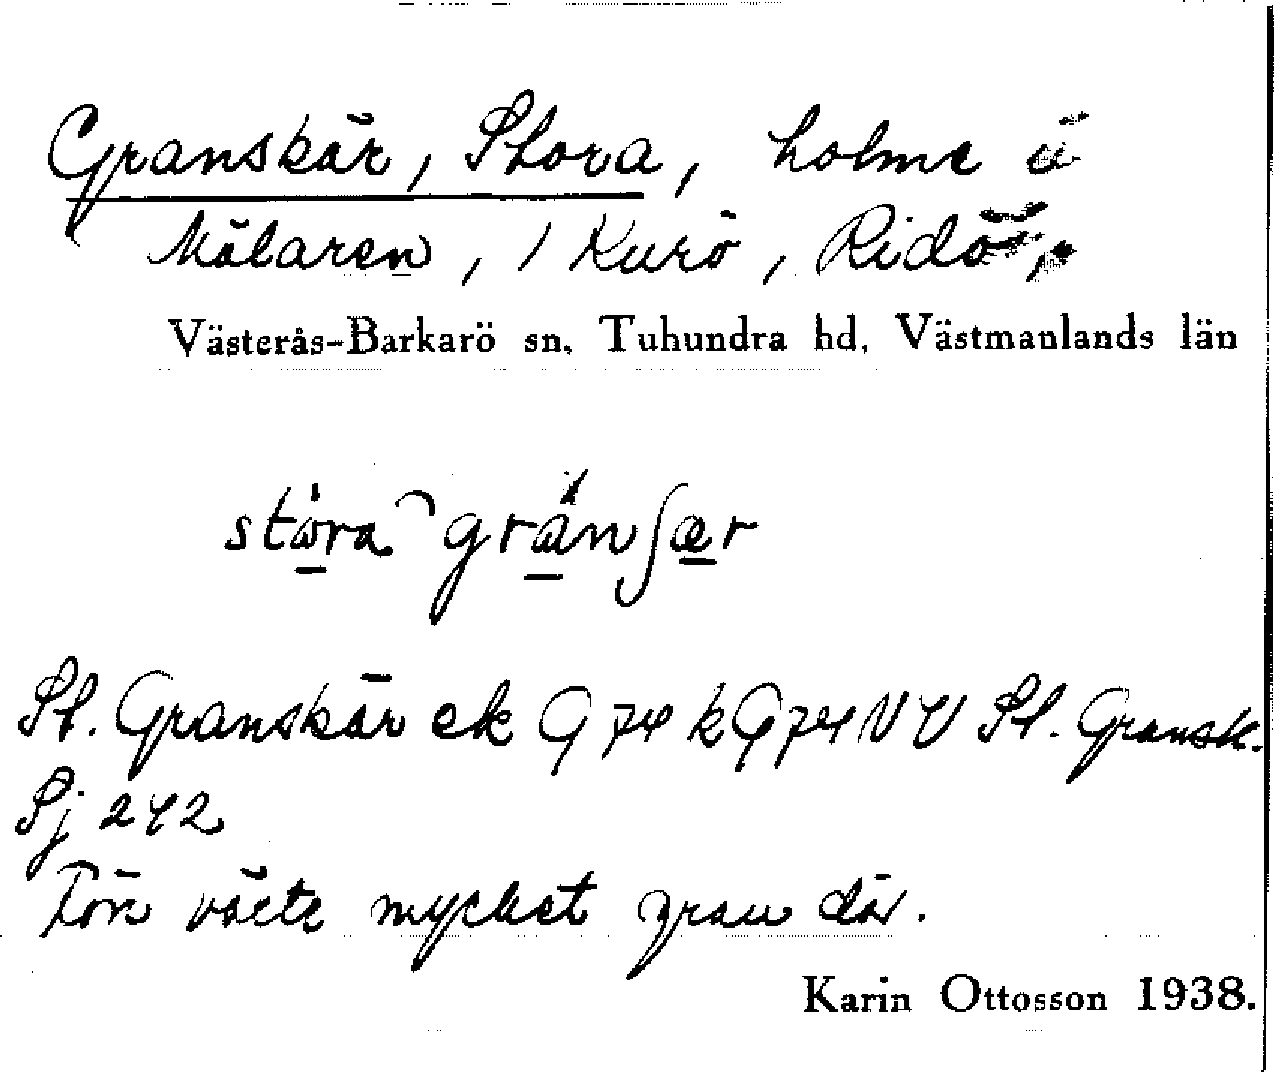 Granskär, Stora, holme i
Mälaren, / Kurö, Ridö,
Västerås-Barkarö sn, Tuhundra hd, Västmanlands län
stora gränʃær
St. Granskär ek G 74 k G 74 NV St. Gransk.
Sj 242
Förr växte mycket gran där.
Karin Ottosson 1938.